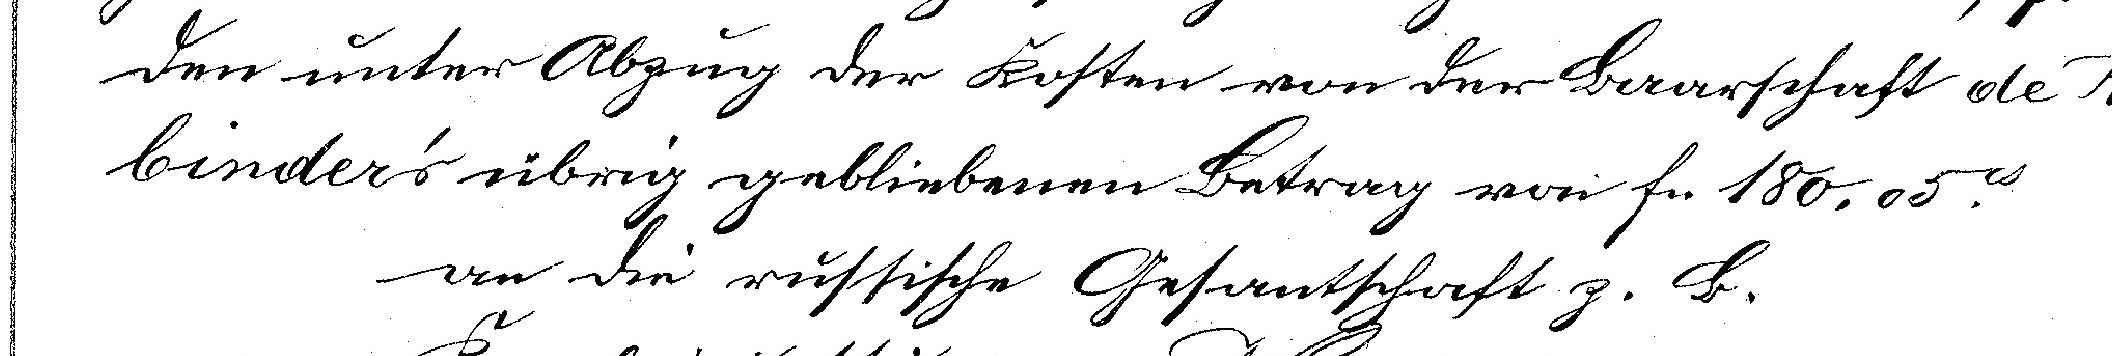 den unter Abzug der Kosten von der Baarschaft de
binder's übrig gebliebenen Betrag von fr. 180.05 cs
an die russische Gesantschaft z. B.